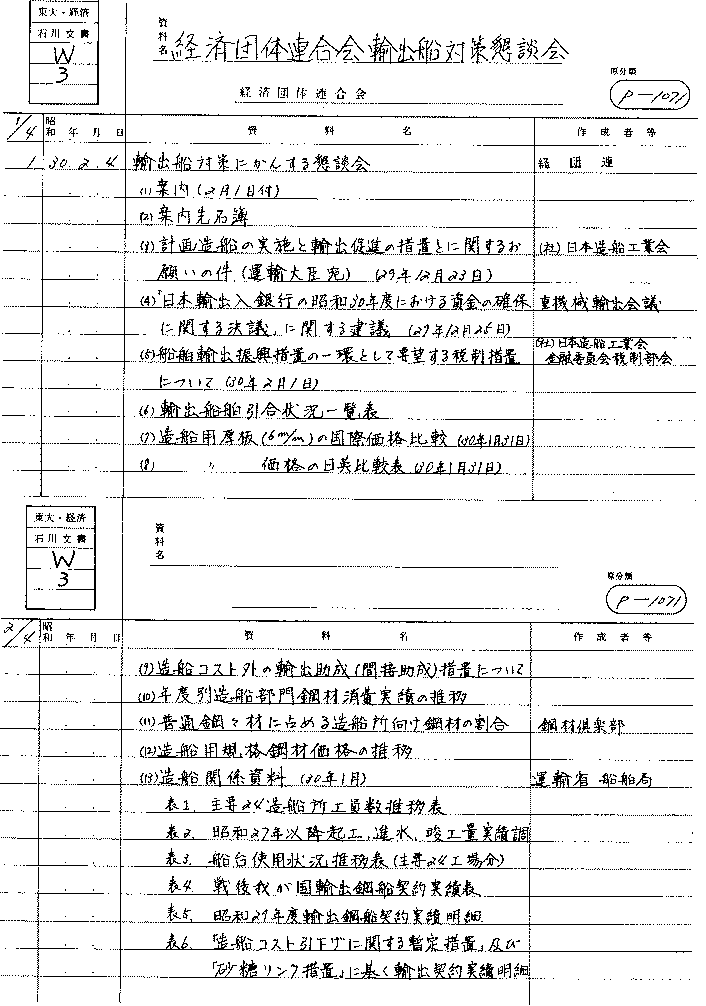 東大・経済
石川文書
W
3
資料名 経済団体連合会輸出船対策懇談会
経済団体連合会
原分類
P-1071
1/4 昭和 年 月 日 資料名 作成者等
1 30.2.4 輸出船対策にかんする懇談会 経団連
(1)案内(2月1日付)
(2)案内先名簿
(3)計画造船の実施と輸出促進の措置とに関するお (社)日本造船工業会
願いの件(運輸大臣宛) (29年12月23日)
(4)「日本輸出入銀行の昭和30年度における資金の確保 重機械輸出会議
に関する決議」に関する建議 (29年12月25日)
(5)船舶輸出振興措置の一環として要望する税制措置 (社)日本造船工業会
について(30年2月1日) 金融委員会税制部会
(6)輸出船舶引合状況一覧表
(7)造船用厚板(6m/m)の国際価格比較(30年1月31日)
(8) 〃 価格の日英比較表(30年1月31日)
東大・経済
石川文書
W
3
資料名
原分類
P-1071
2/4 昭和 年 月 日 資料名 作成者等
(9)造船コスト外の輸出助成(間接助成)措置について
(10)年度別造船部門鋼材消費実績の推移
(11)普通鋼々材に占める造船所向け鋼材の割合 鋼材倶楽部
(12)造船用規格鋼材価格の推移
(13)造船関係資料 (30年1月) 運輸省 船舶局
表1. 主要24造船所工員数推移表
表2. 昭和27年以降起工、進水、竣工量実績調
表3. 船台使用状況推移表(主要24工場分)
表4. 戦後我が国輸出鋼船契約実績表
表5. 昭和29年度輸出鋼船契約実績明細
表6. 「造船コスト引下げに関する暫定措置」及び
「砂糖リンク措置」に基く輸出契約実績明細